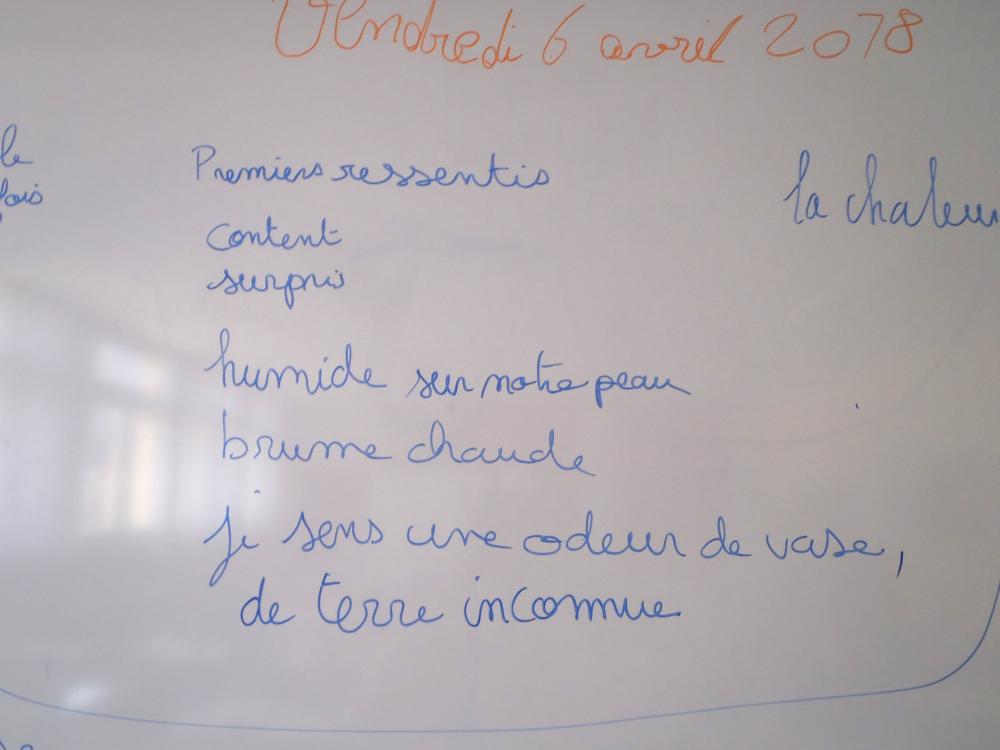 Vendredi 6 avril 2078
le
fois
Premiers ressentis
content
surpris
la chaleur
humide sur notre peau
brume chaude
je sens une odeur de vase,
de terre inconnue.